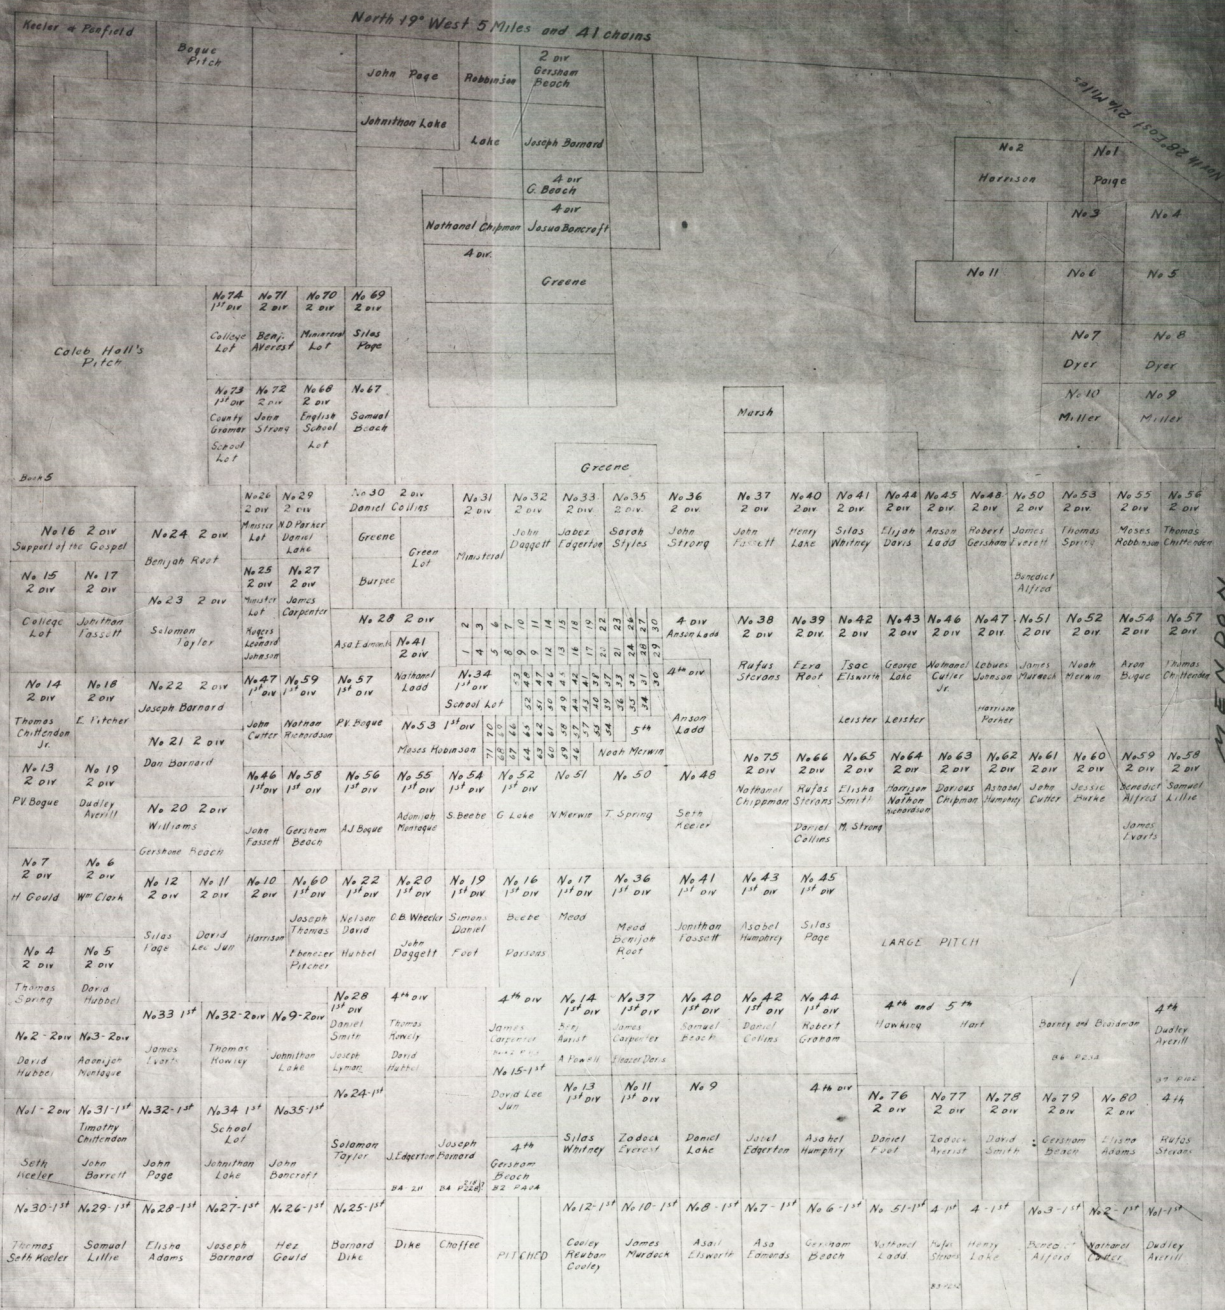 North 19° West 5 Miles and 41 chains
North 28° East 2¼ Miles
Keeler & Penfield
Bogue
Pitch
John Page
Robbinson
2 DIV
Gersham
Beach
Johnithan Lake
Lake
Joseph Barnard
4 DIV
G. Beach
4 DIV
Nathanal Chipman
Josua Bancroft
4 DIV.
Greene
No 2
Harrison
No 1
Paige
No 3
No 4
No 11
No 6
No 5
No 7
Dyer
No 8
Dyer
No 10
Miller
No 9
Miller
Caleb Hall's
Pitch
No 74
1st DIV
College
Lot
No 71
2 DIV
Benj.
Averest
No 70
2 DIV
Ministeral
Lot
No 69
2 DIV
Silas
Page
No 73
1st DIV
County
Gramer
School
Lot
No 72
2 DIV
John
Strong
No 68
2 DIV
English
School
Lot
No 67
Samual
Beach
Marsh
Greene
Book 5
No 16 2 DIV
Support of the Gospel
No 24 2 DIV
Benijah Root
No 26
2 DIV
Minister
Lot
No 29
2 DIV
N.D. Parker
Daniel
Lake
No 30 2 DIV
Daniel Collins
Greene
Green
Lot
Burpee
No 31
2 DIV.
Ministeral
No 32
2 DIV
John
Daggett
No 33
2 DIV.
Jabez
Edgerton
No 35
2 DIV
Sarah
Styles
No 36
2 DIV.
John
Strong
No 37
2 DIV
John
Fassett
No 40
2 DIV.
Henry
Lake
No 41
2 DIV
Silas
Whitney
No 44
2 DIV
Elijah
Davis
No 45
2 DIV
Anson
Ladd
No 48
2 DIV
Robert
Gersham
No 50
2 DIV
James
Everett
Benedict
Alfred
No 53
2 DIV
Thomas
Spring
No 55
2 DIV
Moses
Robbinson
No 56
2 DIV
Thomas
Chittenden
No 15
2 DIV
College
Lot
No 17
2 DIV
Jonithan
Fassett
No 23 2 DIV
Solomon
Taylor
No 25
2 DIV
Minister
Lot
Rogers
Leonard
Johnson
No 27
2 DIV
James
Carpenter
No 28 2 DIV
Asa Edmunds
No 41
2 DIV.
Nathanal
Ladd
No 34
1st DIV
School Lot
2 3 6 7 10 11 14 15 18 19 22 23 26 27 30
1 4 5 8 9 12 13 16 17 20 21 24 28 29
4 DIV
Anson Ladd
4th DIV
Anson
Ladd
5th
Noah Merwin
No 38
2 DIV
Rufus
Stevans
No 39
2 DIV.
Ezra
Root
No 42
2 DIV
Isac
Elsworth
Leister
No 43
2 DIV
George
Lake
Leister
No 46
2 DIV
Nathanal
Cutler
Jr.
No 47
2 DIV.
Lebues
Johnson
Harrison
Parker
No 51
2 DIV
James
Murdock
No 52
2 DIV
Noah
Merwin
No 54
2 DIV
Aron
Bogue
No 57
2 DIV
Thomas
Chittenden
No 14
2 DIV
Thomas
Chittendon
Jr.
No 18
2 DIV
E. Pitcher
No 22 2 DIV
Joseph Barnard
No 21 2 DIV
Dan Barnard
No 47
1st DIV
John
Cutter
No 59
1st DIV
Nathan
Richardson
No 57
1st DIV
P.V. Bogue
No 53 1st DIV
Moses Robinson
No 13
2 DIV
P.V. Bogue
No 19
2 DIV
Dudley
Averill
No 20 2 DIV
Williams
Gershone Beach
No 46
1st DIV
John
Fassett
No 58
1st DIV
Gersham
Beach
No 56
1st DIV
A.J. Bogue
No 55
1st DIV
Adonijah
Montague
No 54
1st DIV
S. Beebe
No 52
1st DIV
G Lake
No 51
N. Merwin
No 50
T. Spring
No 48
Seth
Keeler
No 75
2 DIV
Nathanal
Chippman
No 66
2 DIV
Rufas
Stevans
Daniel
Collins
No 65
2 DIV
Elisha
Smith
M. Strong
No 64
2 DIV
Harrison
Nathan
Richardson
No 63
2 DIV
Darious
Chipman
No 62
2 DIV
Asahal
Humphry
No 61
2 DIV
John
Cutter
No 60
2 DIV
Jessie
Burke
No 59
2 DIV
Benedict
Alfred
James
Evarts
No 58
2 DIV
Samuel
Lillie
MENDON
No 7
2 DIV
H Gould
No 6
2 DIV
Wm Clark
No 12
2 DIV
Silas
Page
No 11
2 DIV
David
Lee Jun
No 10
2 DIV
Harrison
No 60
1st DIV
Joseph
Thomas
Ebenezer
Pitcher
No 22
1st DIV
Nelson
David
Hubbel
No 20
1st DIV
C.B. Wheeler
John
Daggett
No 19
1st DIV
Simons
Daniel
Foot
No 16
1st DIV
Beebe
Parsons
No 17
1st DIV
Mead
No 36
1st DIV
Mead
Benijah
Root
No 41
1st DIV
Jonithan
Fassett
No 43
1st DIV
Asabel
Humphrey
No 45
1st DIV
Silas
Page
LARGE PITCH
No 4
2 DIV
Thomas
Spring
No 5
2 DIV
David
Hubbel
No 33 1st
James
Evarts
No 32-2 DIV
Thomas
Rowley
No 9-2 DIV
Johnithan
Lake
No 28
1st DIV
Daniel
Smith
Joseph
Lyman
4th DIV
Thomas
Rowely
David
Hubbel
4th DIV
James
Carpenter
No 15-1st
David Lee
Jun
No 14
1st DIV
Benj
Aurist
A Powell
No 37
1st DIV
James
Carpenter
Eleazer Davis
No 40
1st DIV
Samuel
Beach
No 42
1st DIV
Daniel
Collins
No 44
1st DIV
Robert
Graham
4th and 5th
Hawking Hart
Barney and Boardman
B6 P253
4th
Dudley
Averill
No 2-2 DIV
David
Hubbel
No 3-2 DIV
Adonijah
Montague
No 1-2 DIV
Seth
Keeler
No 31-1st
Timothy
Chittendon
John
Barrett
No 32-1st
John
Page
No 34 1st
School
Lot
Johnithan
Lake
No 35-1st
John
Bancroft
No 24-1st
Solaman
Taylor
J. Edgerton
B4 211
Joseph
Barnard
4th
Gersham
Beach
B2 P404
No 13
1st DIV
Silas
Whitney
No 11
1st DIV
Zadock
Everest
No 9
Daniel
Lake
Jabel
Edgerton
4th DIV
Asahel
Humphry
No 76
2 DIV
Daniel
Foot
No 77
2 DIV
Zadock
Averist
No 78
2 DIV
David
Smith
No 79
2 DIV
Gersham
Beach
No 80
2 DIV
Elisha
Adams
4th
Rufas
Stevans
No 30-1st
Thomas
Seth Keeler
No 29-1st
Samual
Lillie
No 28-1st
Elisha
Adams
No 27-1st
Joseph
Barnard
No 26-1st
Hez
Gould
No 25-1st
Barnard
Dike
Dike
Chaffee
PITCHED
No 12-1st
Cooley
Reuban
Cooley
No 10-1st
James
Murdock
No 8-1st
Asail
Elsworth
No 7-1st
Asa
Edmonds
No 6-1st
Gersham
Beach
No 51-1st
Nathanal
Ladd
4-1st
Rufas
Stevans
4-1st
Henry
Lake
No 3-1st
Benedict
Alford
No 2-1st
Nathanal
Cutter
No 1-1st
Dudley
Averill